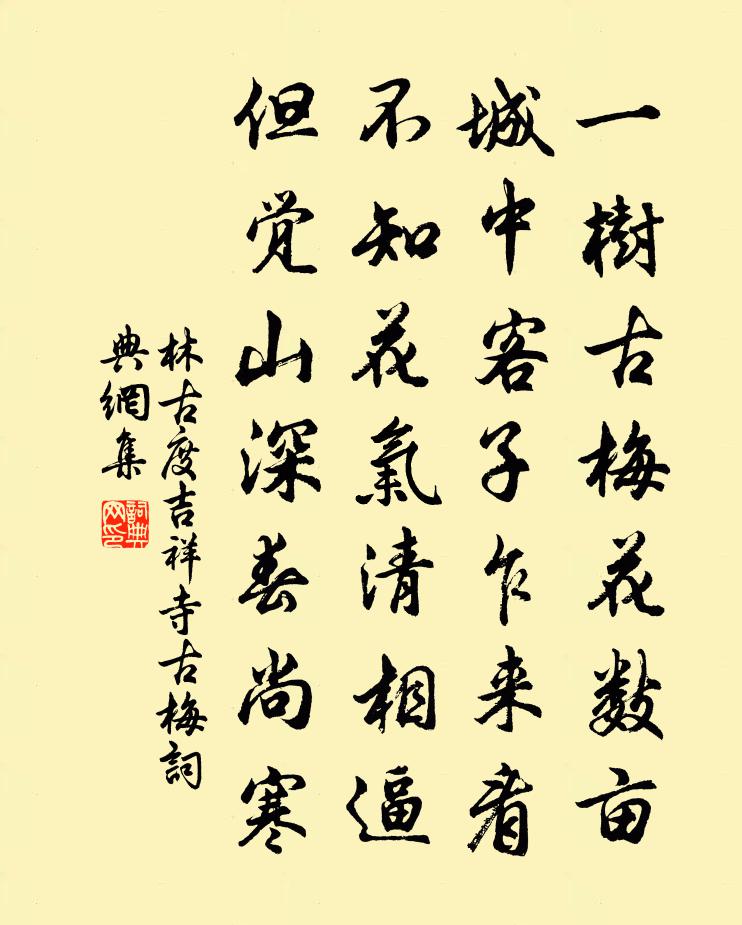 一樹古梅花数亩
城中客子乍来看
不知花氣清相逼
但觉山深春尚寒
林古度吉祥寺古梅詞
典網集
詞典
网印